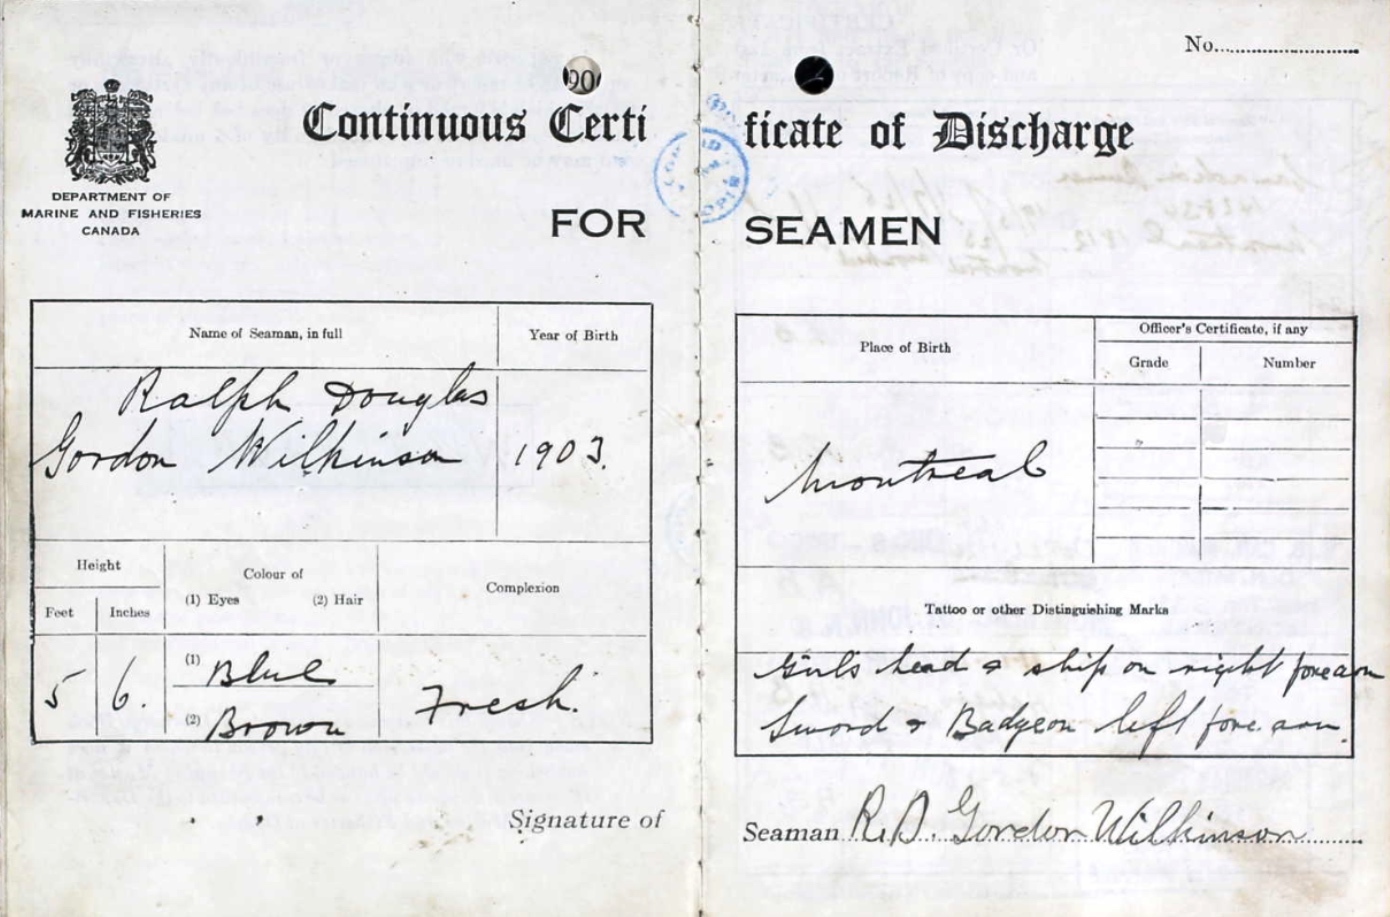 No.
900
Continuous Certificate of Discharge
DEPARTMENT OF
MARINE AND FISHERIES
CANADA
FOR SEAMEN
Name of Seaman, in full
Year of Birth
Ralph Douglas
Gordon Wilkinson
1903.
Height
Feet
Inches
Colour of
(1) Eyes (2) Hair
Complexion
5
6.
(1) Blue
(2) Brown
Fresh.
Place of Birth
Officer's Certificate, if any
Grade
Number
Montreal
Tattoo or other Distinguishing Marks
Girls head & ship on right forearm
Sword & Badge on left forearm.
Signature of Seaman R.D. Gordon Wilkinson